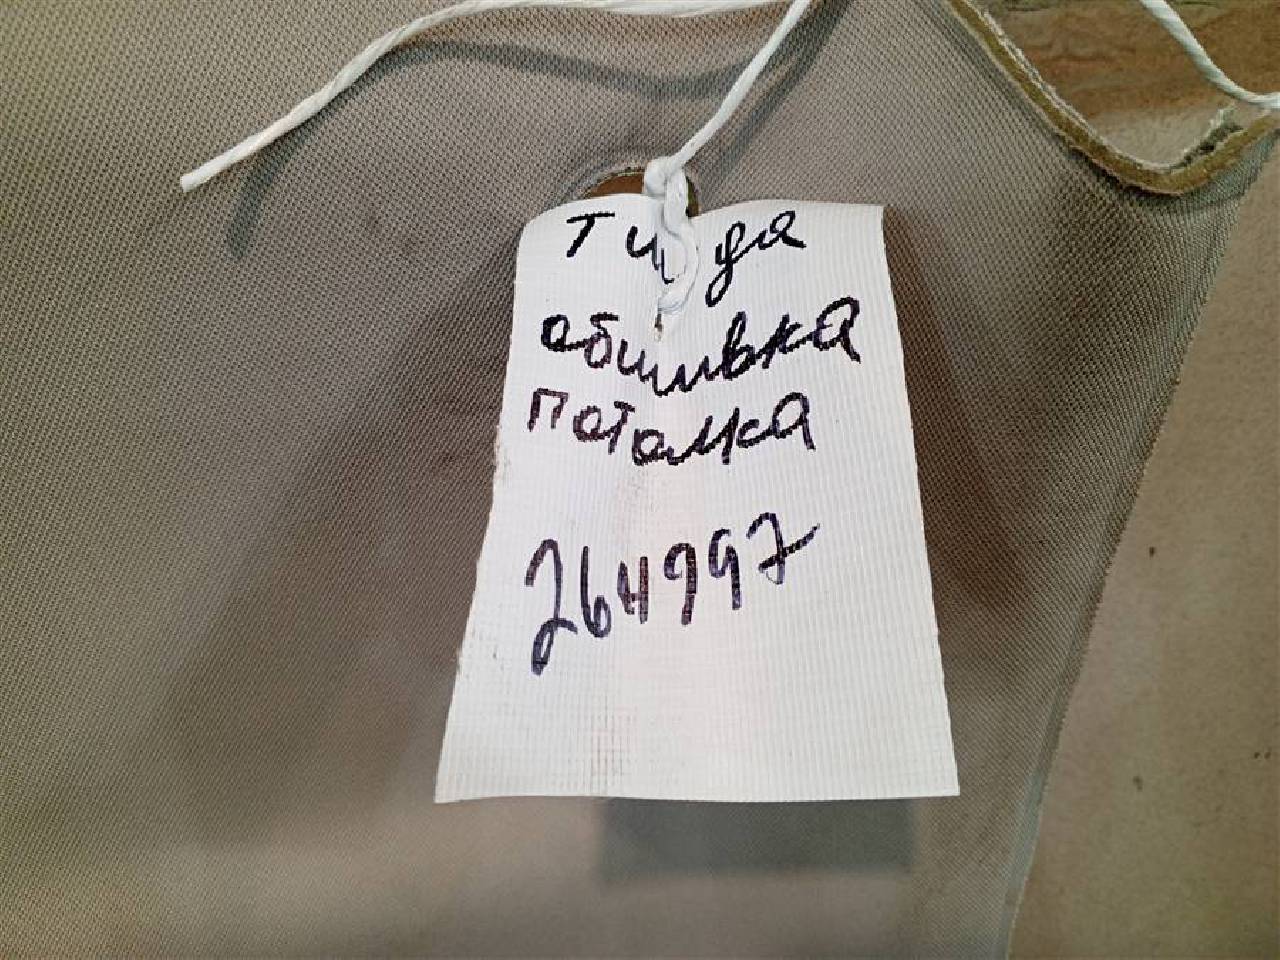 Тиида
обшивка
потолка
264997